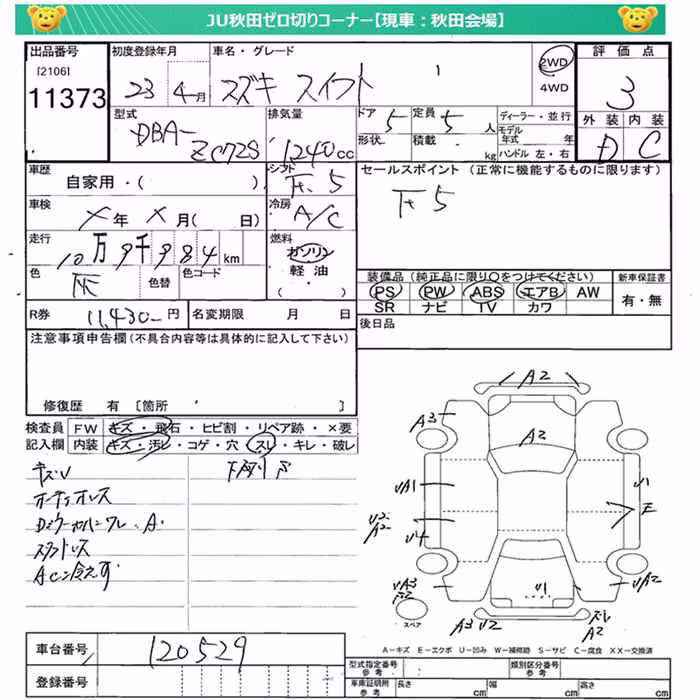 JU秋田ゼロ切りコーナー【現車：秋田会場】
出品番号 初度登録年月 車名・グレード 2WD 4WD 評価点
[2106]
11373 23 4月 スズキ スイフト 1 3
型式 排気量 ドア 5 定員 5人 ディーラー・並行 外装 内装
形状 積載 kg モデル年式 年
DBA-ZC72S 1240cc ハンドル 左・右 D C
車歴 自家用・( ) シフト F. 5 セールスポイント (正常に機能するものに限ります)
F 5
車検 ×年 ×月( 日) 冷房 A/C
走行 10万9千984km 燃料 ガソリン 軽油 ( )
色 灰 色替 色コード
装備品 (純正品に限り○をつけてください) 新車保証書
PS PW ABS エアB AW 有・無
SR ナビ TV カワ
R券 11,430-円 名変期限 月 日 後日品
注意事項申告欄 (不具合内容等は具体的に記入して下さい)
修復歴 有 [箇所 ]
検査員 FW キズ・飛石・ヒビ割・リペア跡・×要
記入欄 内装 キズ・汚レ・コゲ・穴・スレ・キレ・破レ
キズU
オーディオレス
スタットレス
A2
A3
A2
UA1
U1
E
U2
A2
U4
UA3
U1
UA2
スペア
A3 U2
ズレ
A2
A－キズ E－エクボ U－凹み W－補修跡 S－サビ C－腐食 XX－交換済
車台番号 120529
登録番号
型式指定番号 参考 類別区分番号 参考
車庫証明用 参考 長さ cm 幅 cm 高さ cm